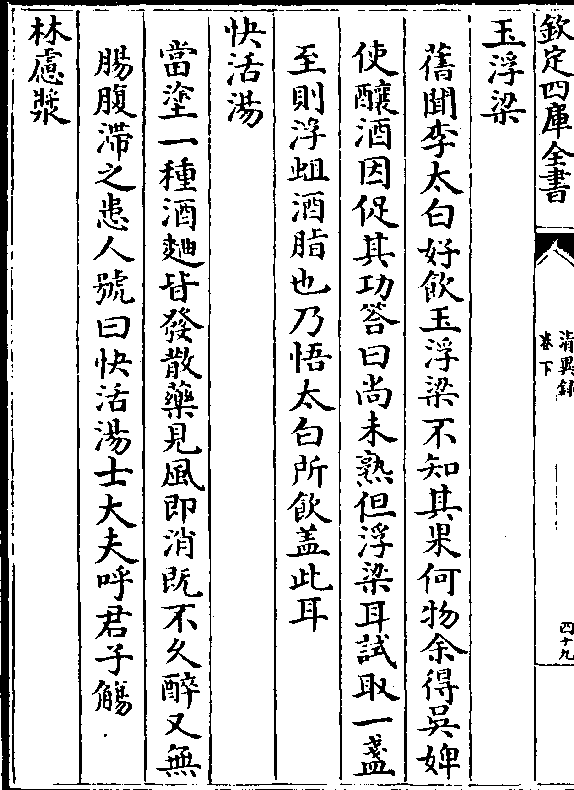 欽定四庫全書
清異録
卷下
四十九
玉浮梁
舊聞李太白好飲玉浮梁不知其果何物余得吳婢
使釀酒因促其功答曰尚未熟但浮梁耳試取一盞
至則浮蛆酒脂也乃悟太白所飲盖此耳
快活湯
當塗一種酒麯皆發散藥見風即消既不久醉又無
腸腹滯之患人號曰快活湯士大夫呼君子觴
林慮漿